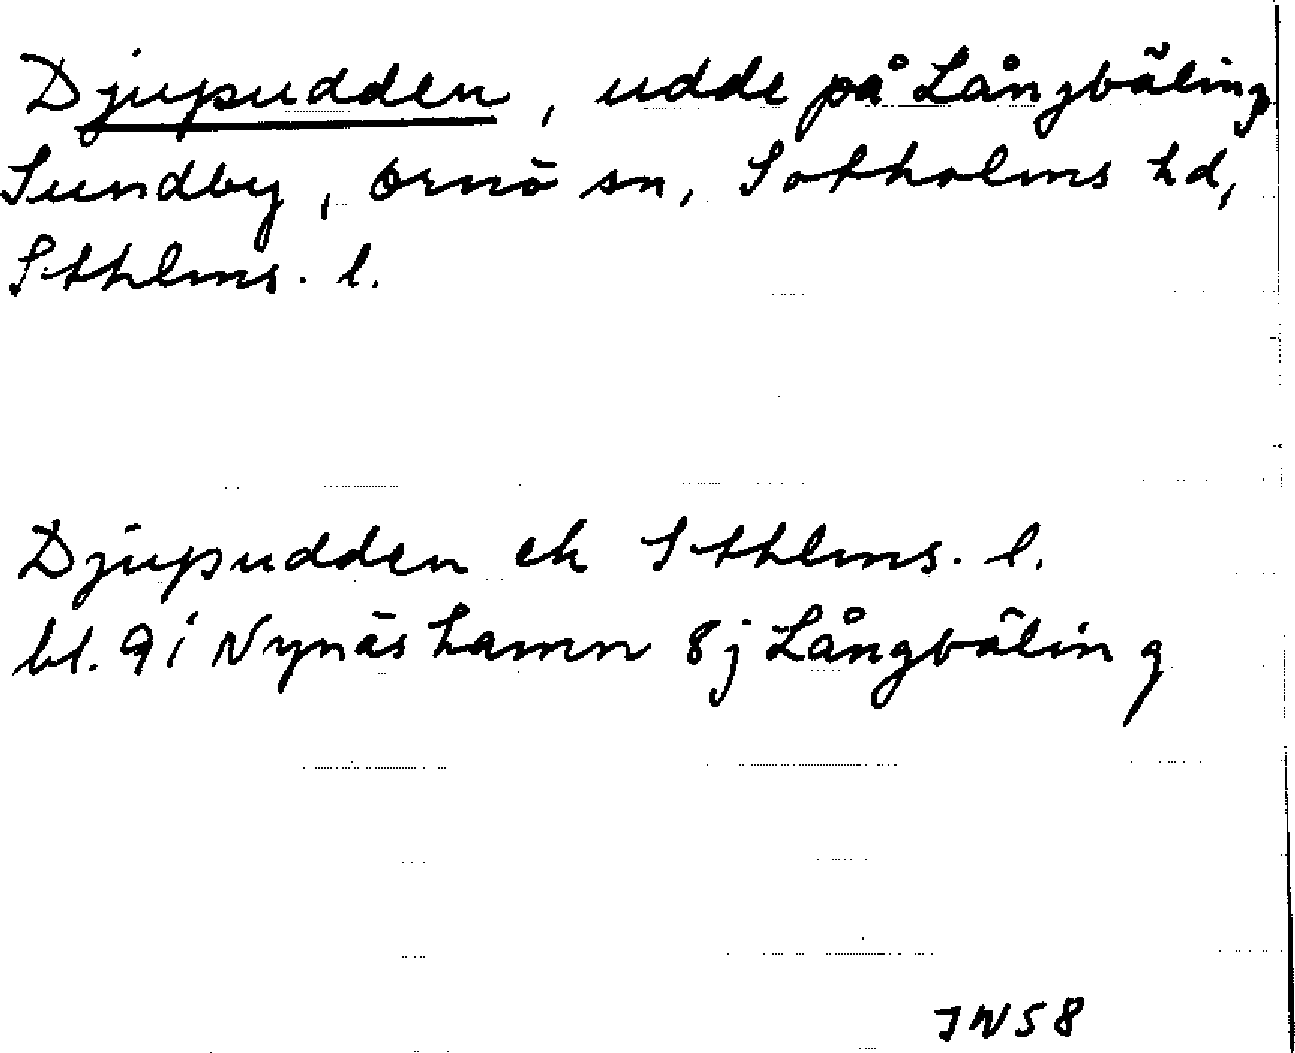 Djupudden, udde på Långbäling
Sundby, Ornö sn, Sotholms hd,
Sthlms. l.
Djupudden ek Sthlms. l.
bl. 9 i Nynäshamn 8j Långbäling
JN58